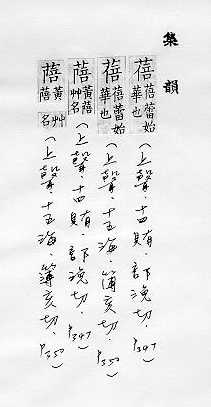 集韻
蓓 蓓蕾始華也(上聲.十四賄.部浼切.P347)
蓓 蓓蕾始華也(上聲.十五海.簿亥切.P350)
蓓 黃蓓艸名(上聲.十四賄.部浼切.P347)
蓓 黃蓓艸名(上聲.十五海.簿亥切.P350)